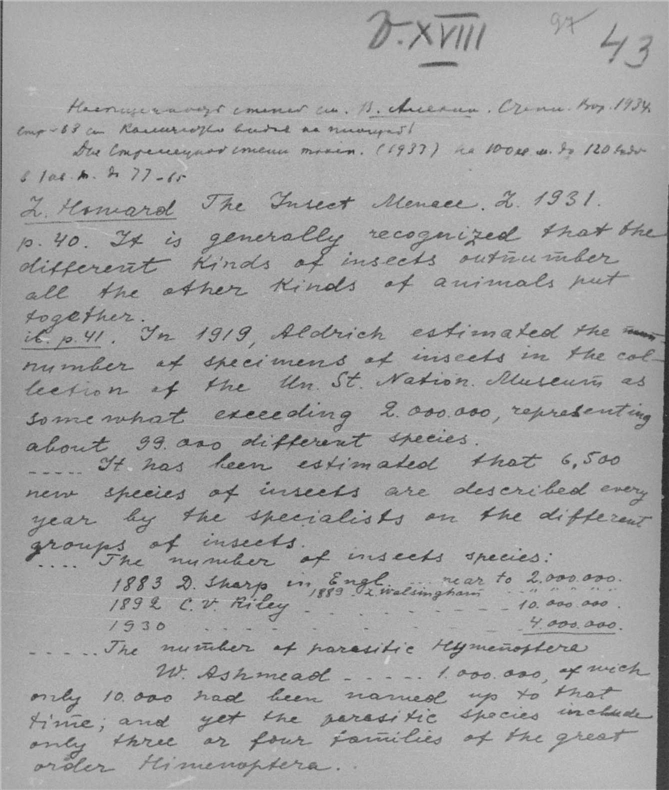 D. XVIII 97 43
степей см. В. Алехин. 1934
стр 68 см
(1937) на 100 кв. м. до 120
в 1 кв. м. до 77
L. Howard The Insect Menace. L. 1931.
p. 40. It is generally recognized that the
different kinds of insects outnumber
all the other kinds of animals put
together.
ib. p. 41. In 1919, Aldrich estimated the
number of specimens of insects in the col-
lection of the Un. St. Nation. Museum as
somewhat exceeding 2.000.000, representing
about 99.000 different species.
..... It has been estimated that 6,500
new species of insects are described every
year by the specialists on the different
groups of insects.
.... The number of insects species:
1883 D. Sharp in Engl. ... near to 2.000.000.
1889 L Walsingham " " "
1892 C. V. Riley - - - - - 10.000.000.
1930 - - - - - 4.000.000.
..... The number of parasitic Hymenoptera
W. Ashmead ----- 1.000.000, of wich
only 10.000 had been named up to that
time; and yet the parasitic species include
only three or four families of the great
order Himenoptera..